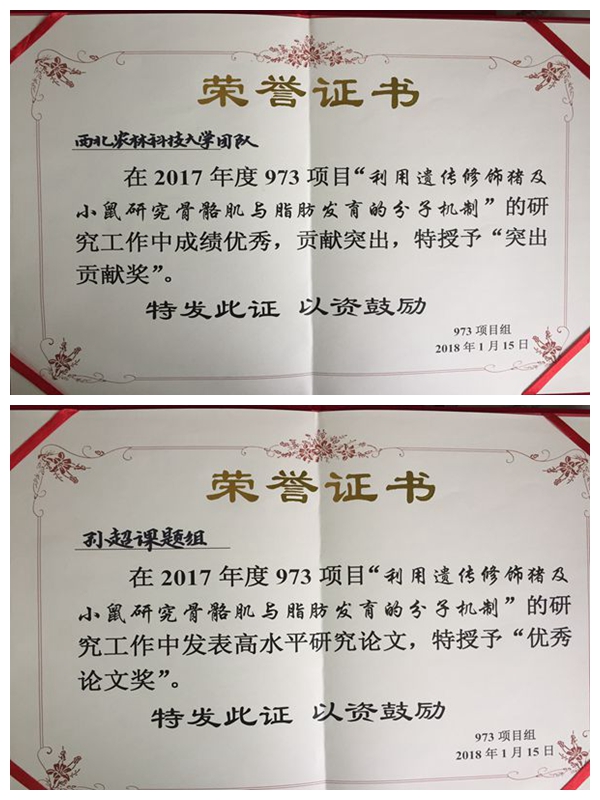 荣誉证书
西北农林科技大学团队
在 2017 年度 973 项目“利用遗传修饰猪及
小鼠研究骨骼肌与脂肪发育的分子机制”的研
究工作中成绩优秀，贡献突出，特授予“突出
贡献奖”。
特发此证 以资鼓励
973 项目组
2018 年 1 月 15 日
荣誉证书
孙超课题组
在 2017 年度 973 项目“利用遗传修饰猪及
小鼠研究骨骼肌与脂肪发育的分子机制”的研
究工作中发表高水平研究论文，特授予“优秀
论文奖”。
特发此证 以资鼓励
973 项目组
2018 年 1 月 15 日